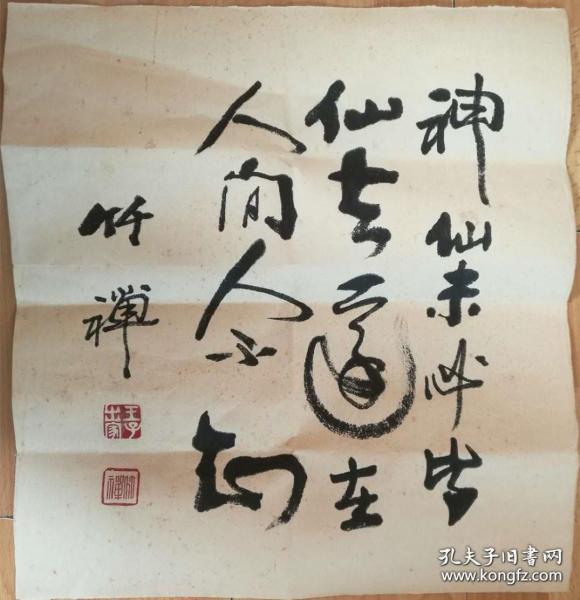 神仙未必皆
仙去還在
人間人不知
竹禪
王子出家
竹禪
孔夫子旧书网
www.kongfz.com